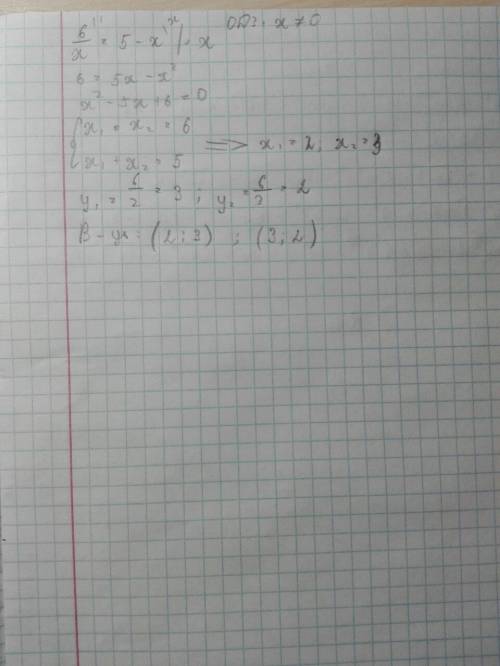 6/x = 5 - x | · x ОДЗ: x ≠ 0
6 = 5x - x²
x² - 5x + 6 = 0
{ x₁ = x₂ = 6
{ x₁ + x₂ = 5 => x₁ = 2, x₂ = 3
y₁ = 6/2 = 3 ; y₂ = 6/3 = 2
В-дь: (2; 3) ; (3; 2)